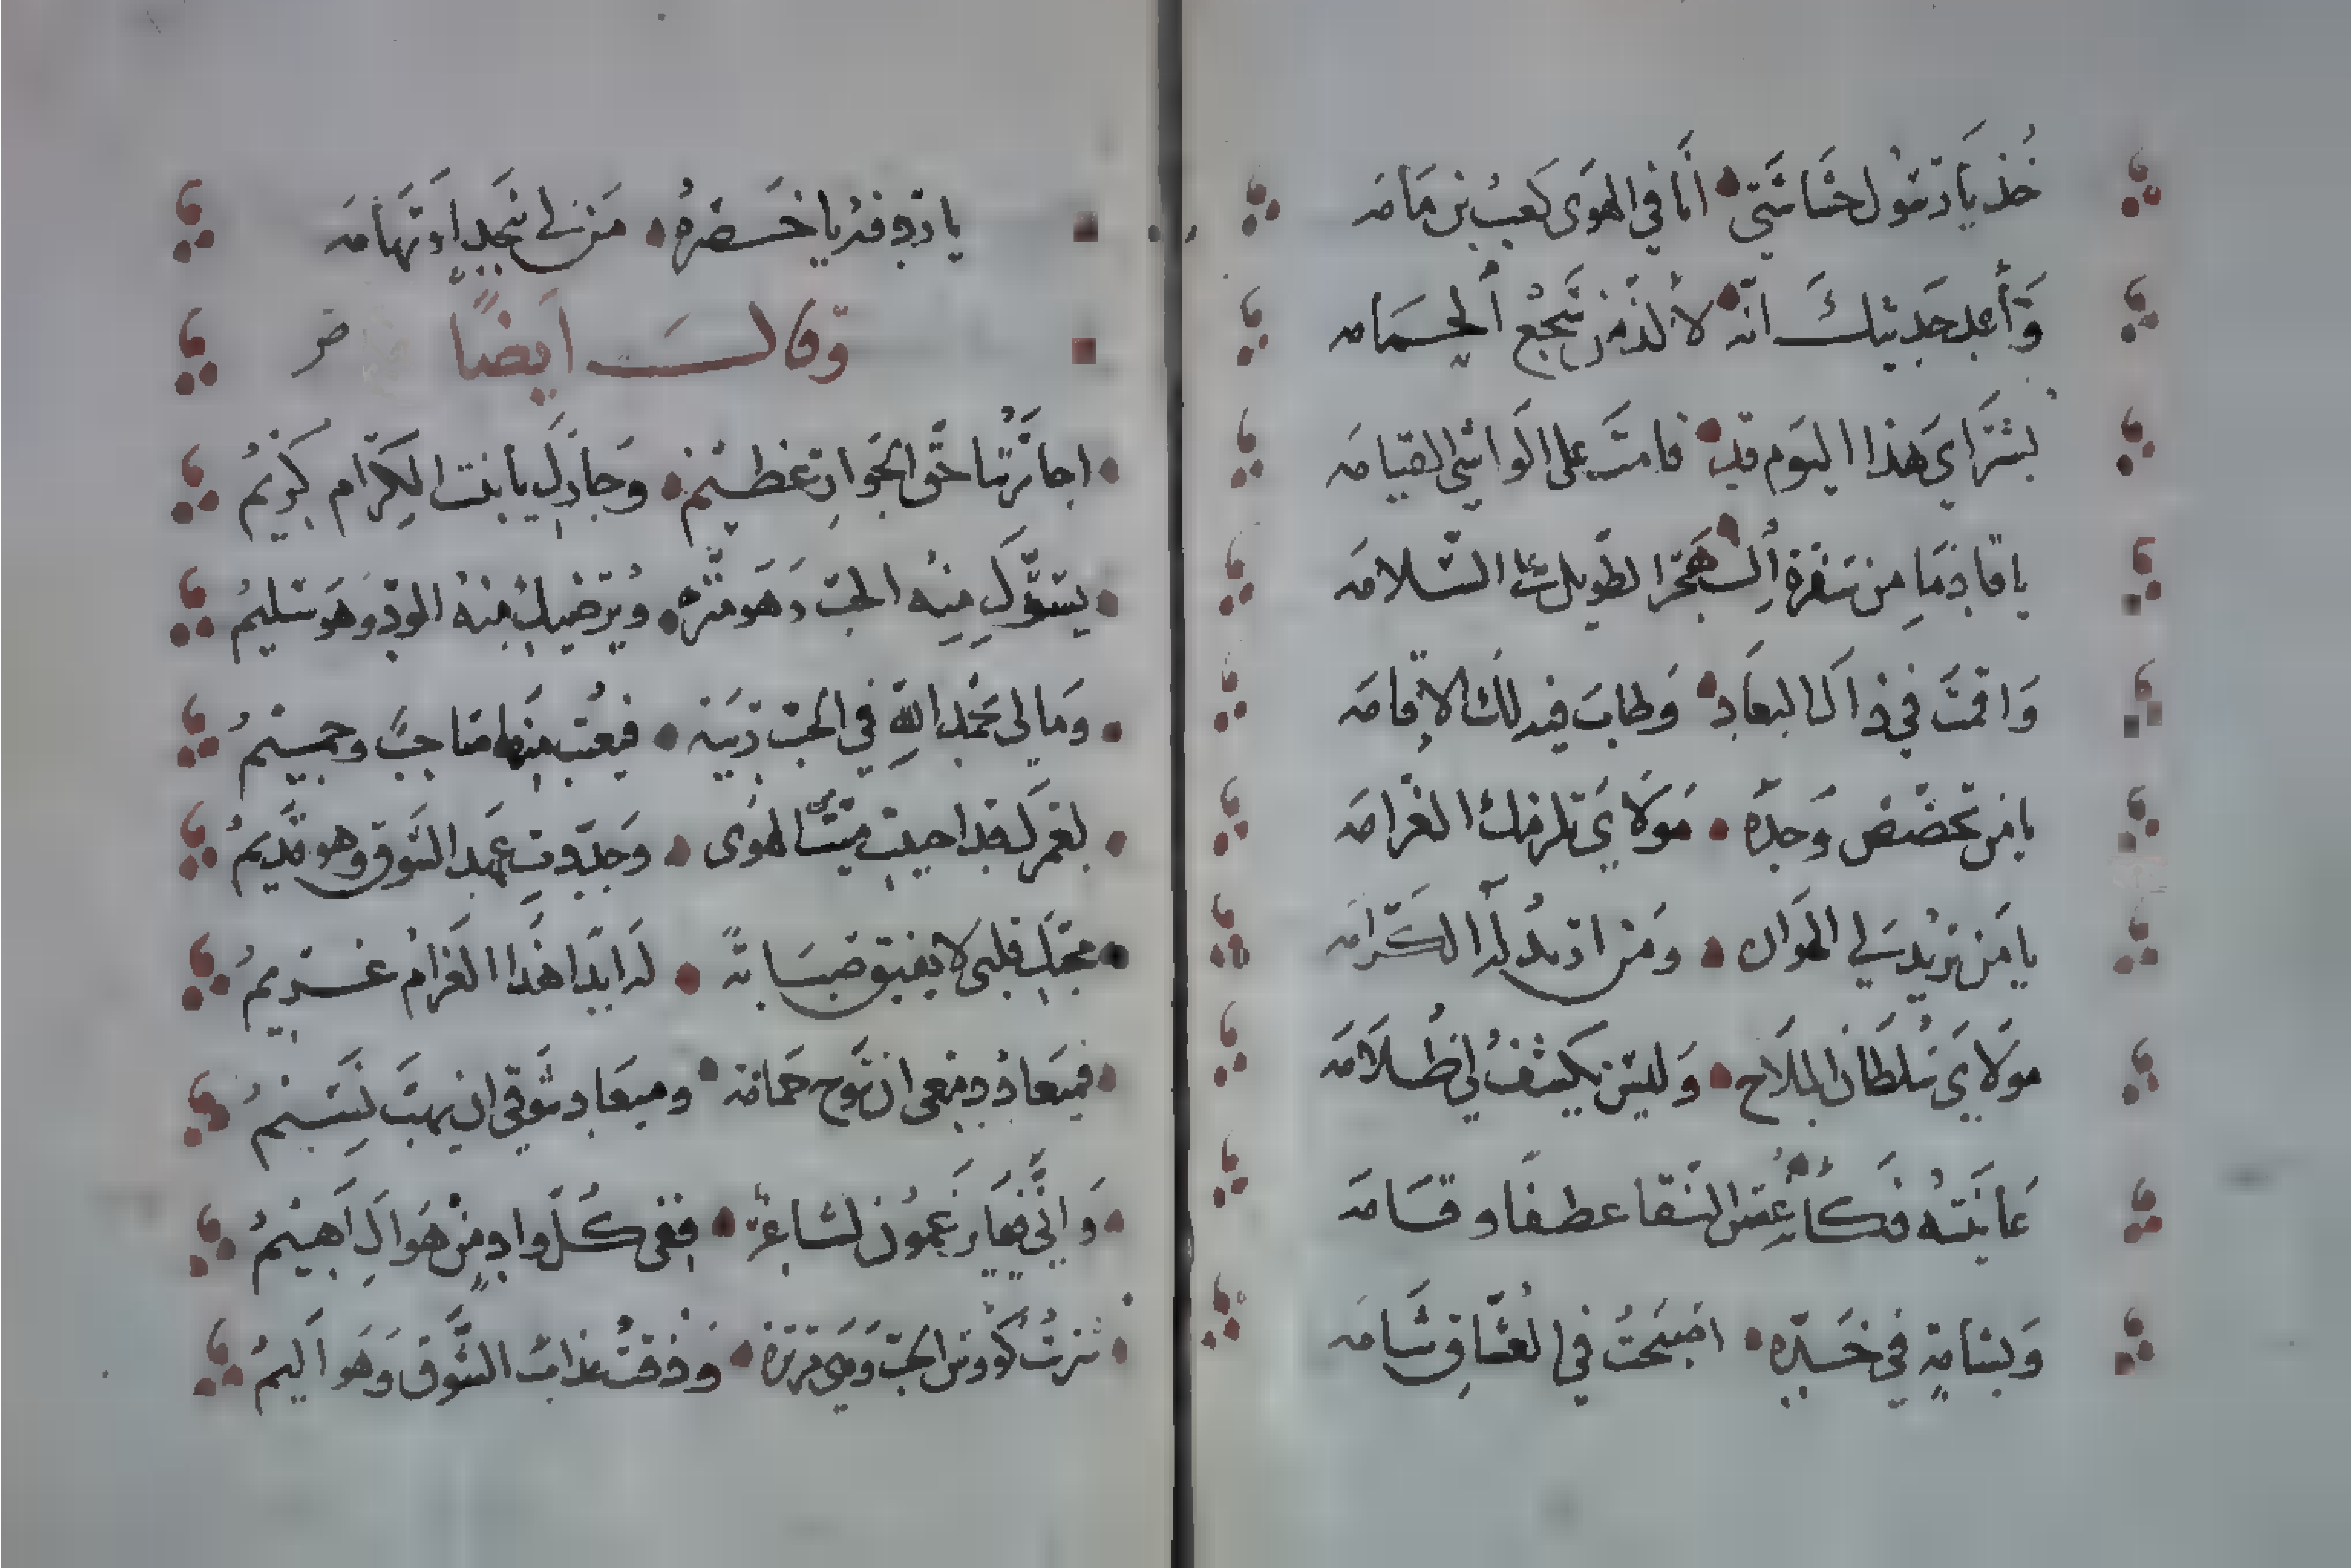 خذ يا رسول حشاشتي انا في الهوى كعب بن مامه
وأعد حديثك انه لألذ من سجع الحمامه
بشراي هذا اليوم قد قامت على الواشي القيامه
يا قادما من سفرة الهجر الطويل على السلامه
واقمت في ذاك البعاد وطاب فيه لك الاقامه
يا من تخصص وحده مولاي تلزمك الغرامه
يا من يريد لي الهوان ومن اريد له الكرامه
مولاي سلطان الملاح وليس يكشف لي ظلامه
عاينته فكأنه غصن النقا عطفا وقامه
وبشامة في خده اصبحت في العشاق شامه
يا ردفه يا خصره من لي بنجد او تهامه
وقال ايضا
اجارتنا حق الجوار عظيم وجارك يا بنت الكرام كريم
يسرك منه الحب وهو منزه ويرضيك منه الود وهو سليم
وما لي بحمد الله في الحب ريبة فيعتب منها صاحب وحميم
لعمرك قد احييت ميت الهوى وجددت عهد الشوق وهو قديم
بحبك قلبي لا يفيق صبابة له ابدا هذا الغرام غريم
فميعاد دمعي ان تنوح حمامة وميعاد شوقي ان يهب نسيم
واني فيما يزعمون لشاعر ففي كل واد من هواك اهيم
شربت كؤوس الحب وهي مريرة وذقت عذاب الشوق وهو اليم